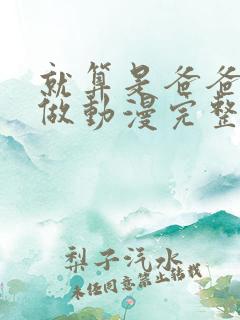 就算是爸爸
做動漫完整
梨子汽水
未经同意禁止转载